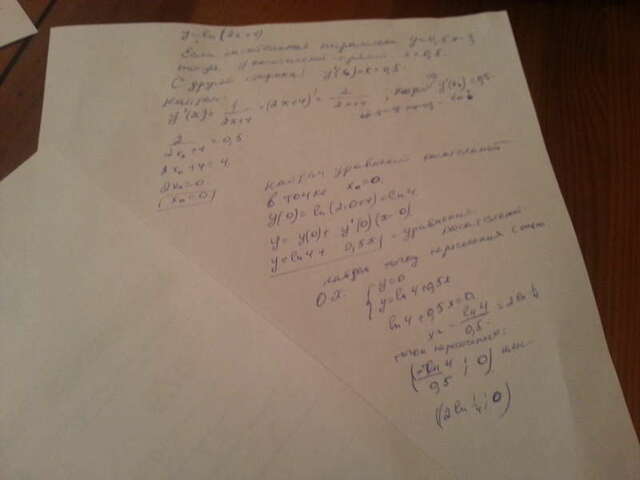 y = ln(2x+4)
Если касательная параллельна y=0,5x-3
тогда k касательной равен k=0,5.
С другой стороны y'(x₀)=k=0,5.
Найдём:
y'(x) = 1/(2x+4) · (2x+4)' = 2/(2x+4) ; y'(x₀)=0,5
2/(2x₀+4) = 0,5
2x₀+4=4
2x₀=0
x₀=0
Найдём уравнение касательной
в точке x₀=0.
y(0)=ln(2·0+4)=ln4
y= y(0)+ y'(0)(x-0)
y=ln4+ 0,5x - уравнение касательной
найдем точку пересечения с осью
OX: { y=0
y=ln4+0,5x
ln4+0,5x=0
x= - ln4/0,5 = 2ln 1/4
точка пересечения:
(-ln4/0,5 ; 0) или
(2ln 1/4 ; 0)